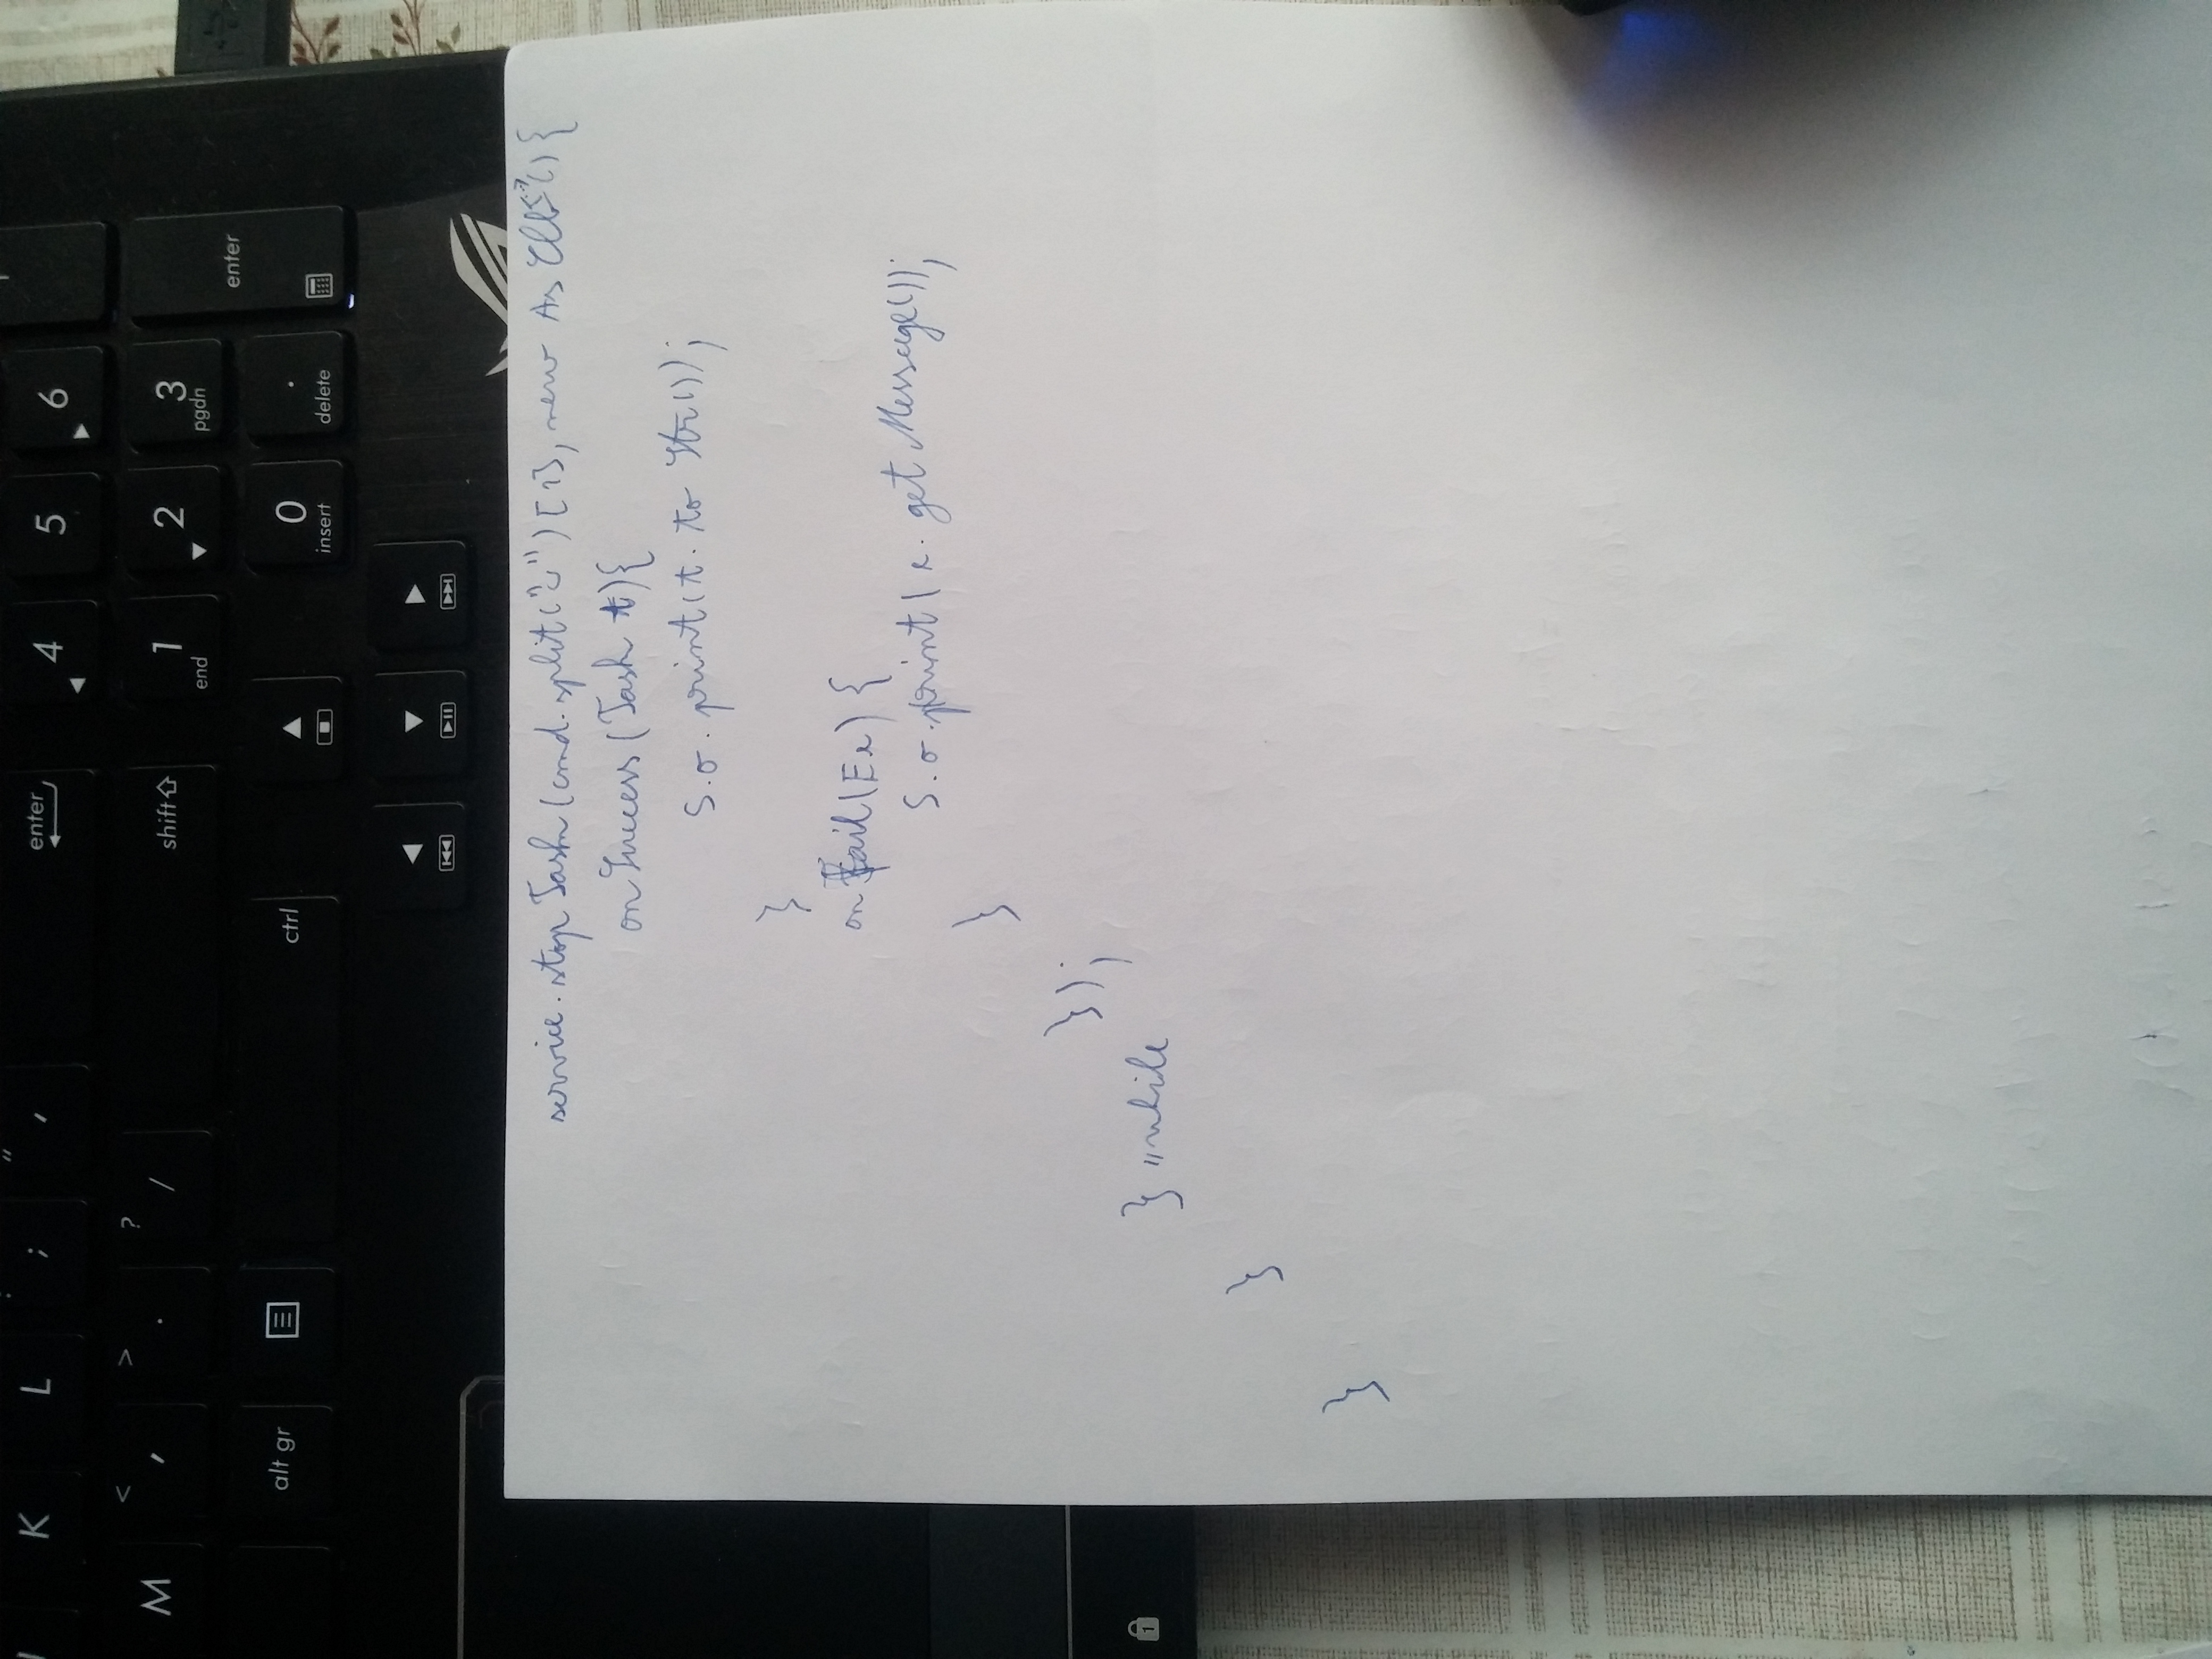 K L : ; " , enter 4 5 6
M < , > . ? / shift 1 end 2 3 pgdn enter
alt gr ctrl 0 insert . delete
service.stopTask(cmd.split("␣")[1], new AsCllb<>(){
onSuccess(Task t){
S.o.print(t.toStr());
}
onFail(E e) {
S.o.print(e.getMessage());
}
});
} //while
}
}
1